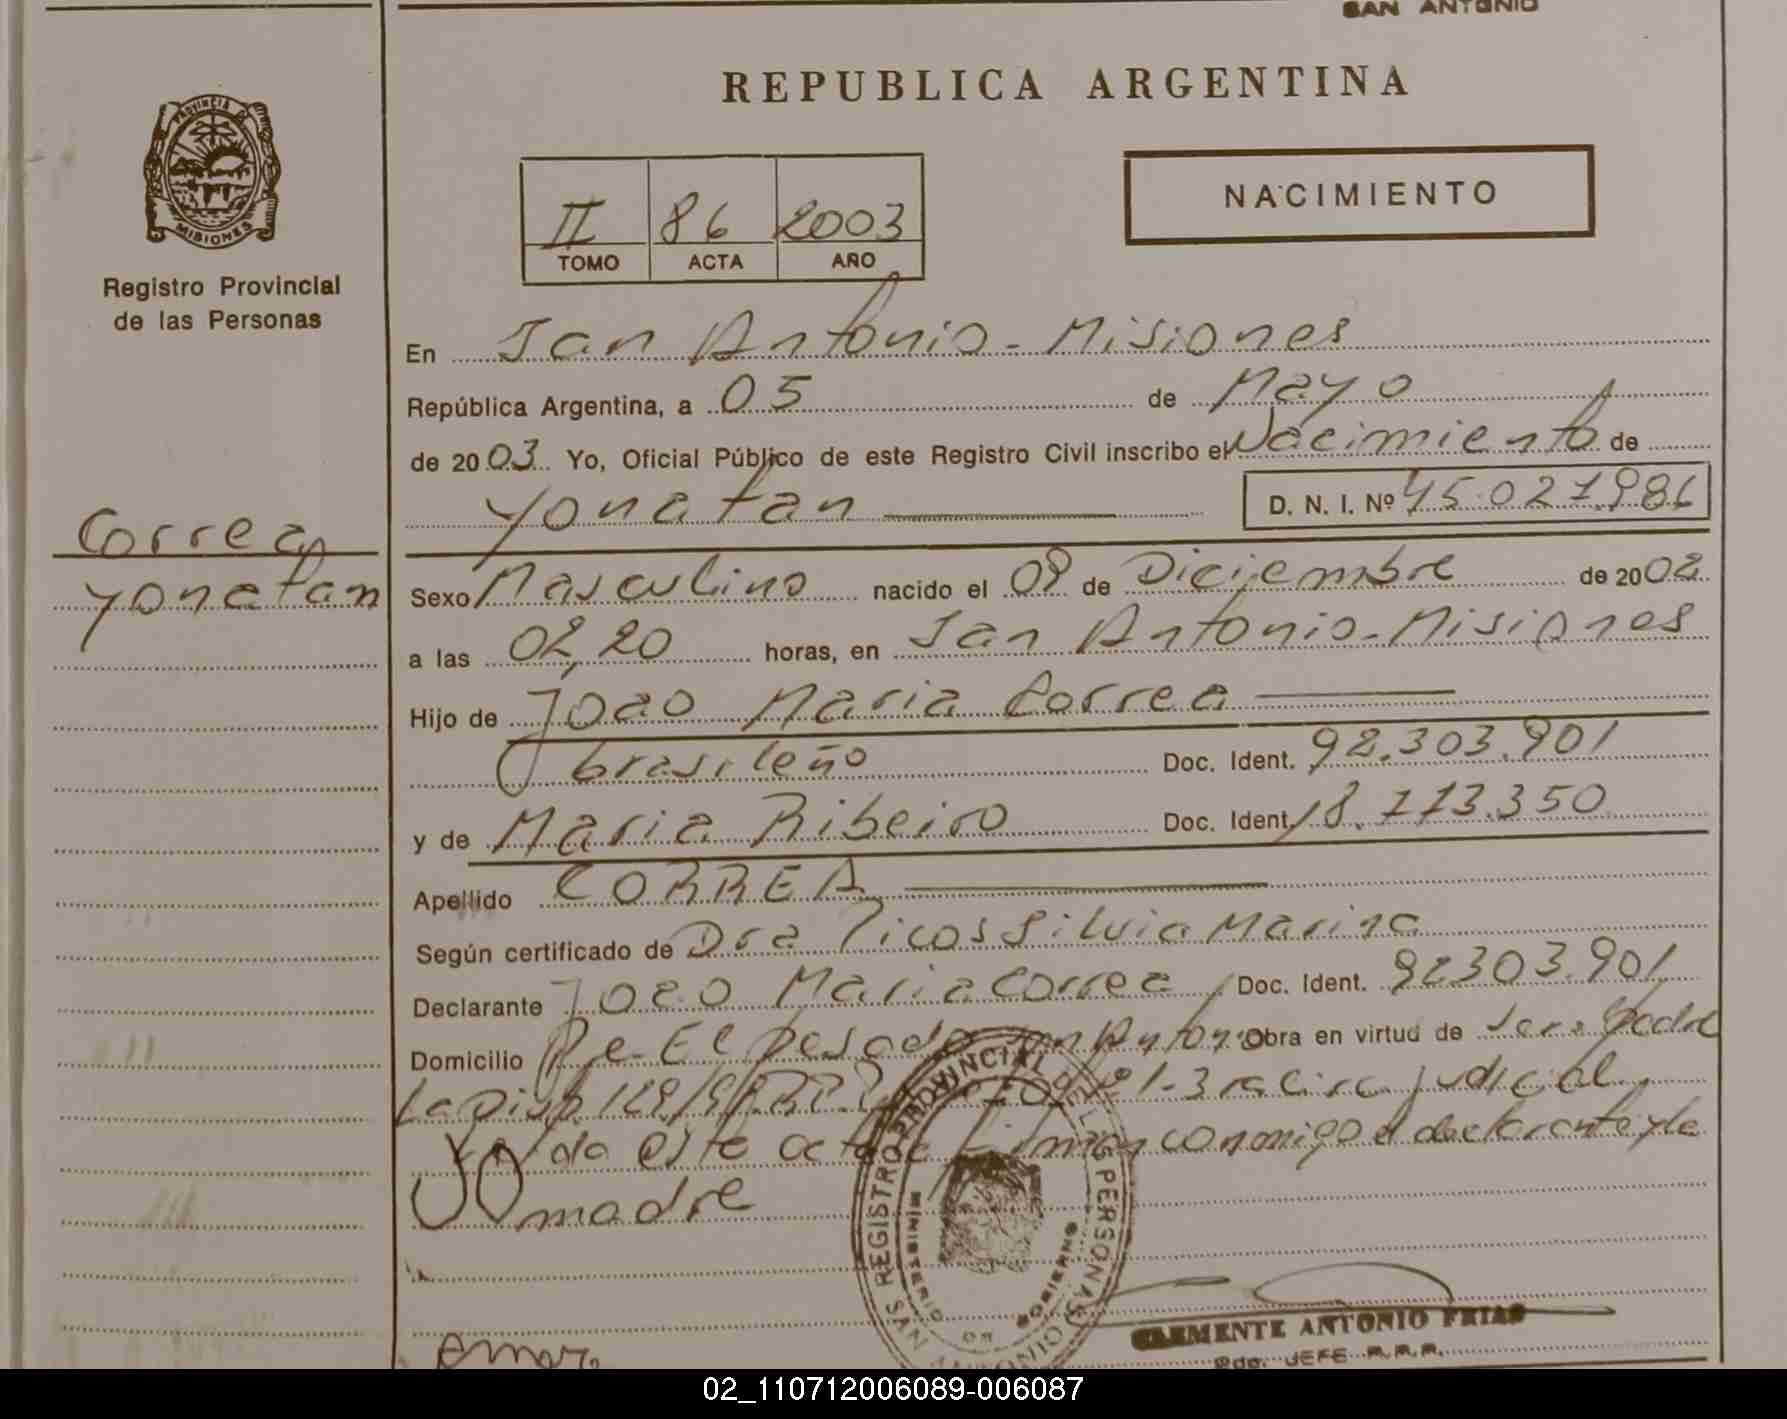 SAN ANTONIO
REPUBLICA ARGENTINA
PROVINCIA DE
MISIONES
Registro Provincial
de las Personas
NACIMIENTO
II 86 2003
TOMO ACTA AÑO
En San Antonio - Misiones
República Argentina, a 05 de Mayo
de 2003. Yo, Oficial Público de este Registro Civil inscribo el Nacimiento de
Yonatan D. N. I. Nº 45.027.986
Correa
Yonatan
Sexo Masculino nacido el 09 de Diciembre de 2002
a las 02,20 horas, en San Antonio - Misiones
Hijo de Joao Maria Correa
brasileño Doc. Ident. 92.303.901
y de Maria Ribeiro Doc. Ident. 18.773.350
Apellido CORREA
Según certificado de Dra Picos Silvia Marina
Declarante Joao Maria Correa Doc. Ident. 92303.901
Domicilio El Pesado San Anton. Obra en virtud de ser Padre
judicial
Leida este acta firman conmigo el declarante y la
madre
REGISTRO PROVINCIAL DE LAS PERSONAS
MINISTERIO DE GOBIERNO
SAN ANTONIO
CLEMENTE ANTONIO FRIAS
JEFE R.P.P.
02_110712006089-006087